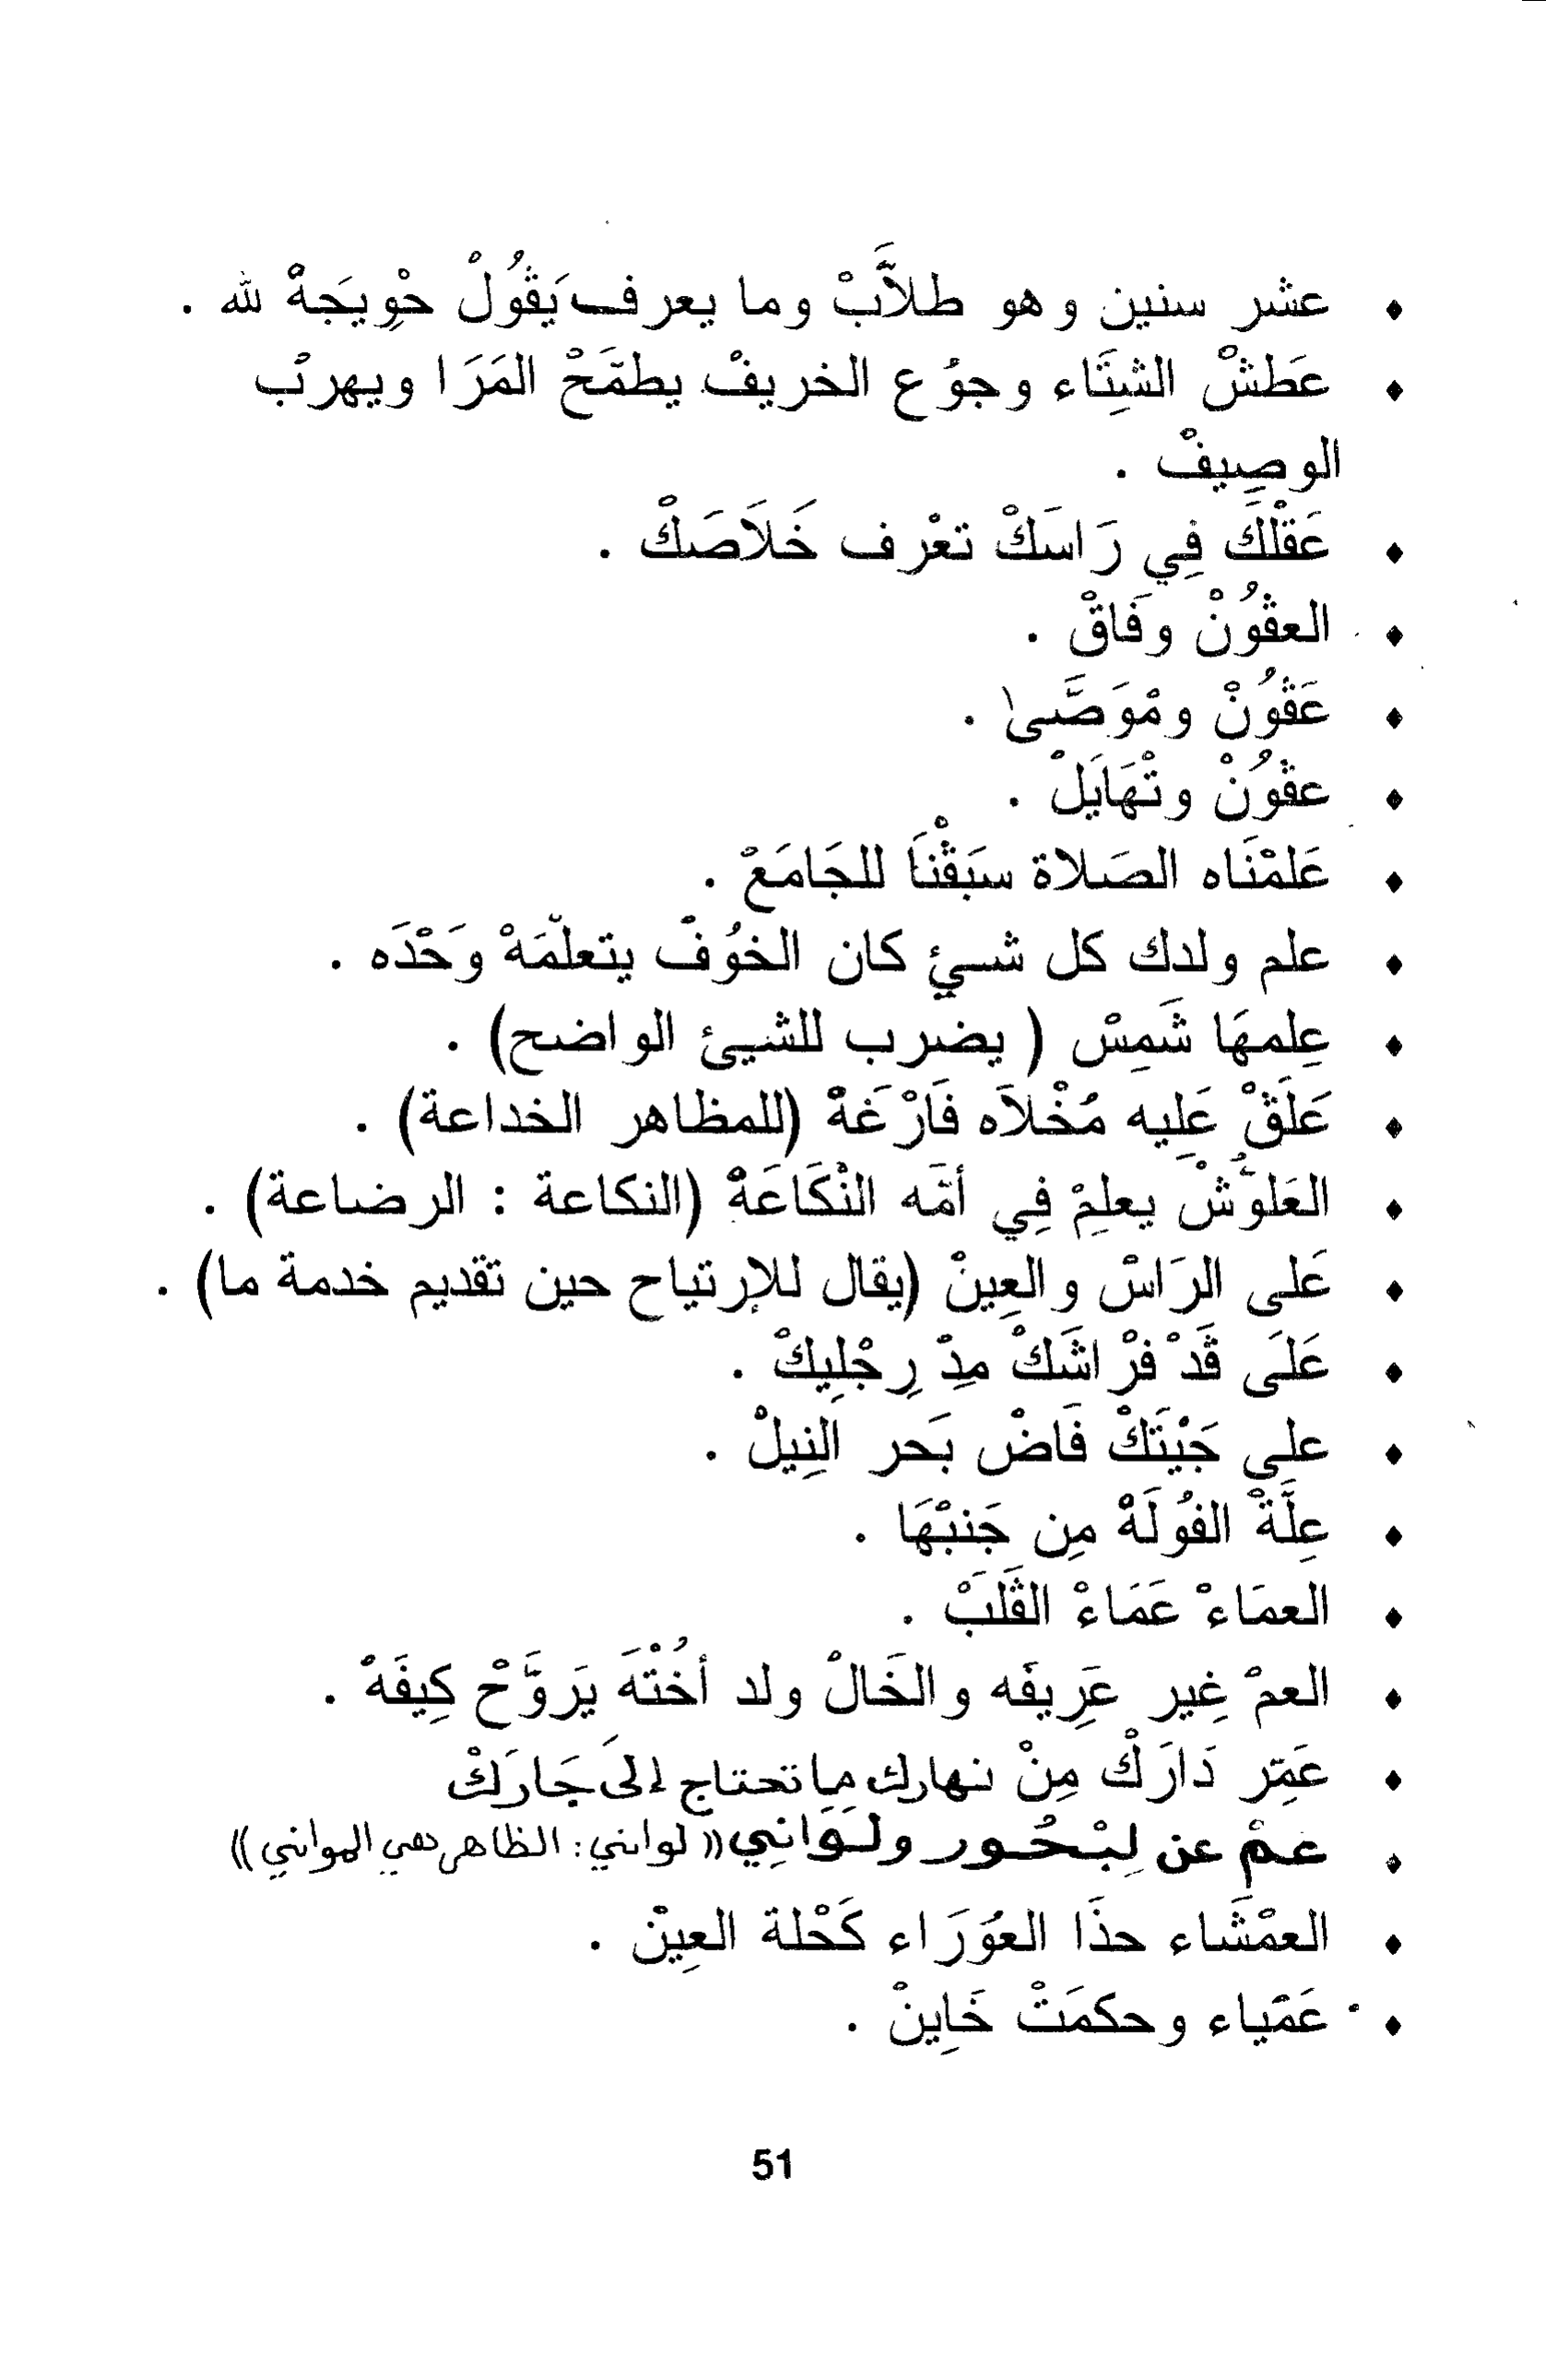 ♦ عشر سنين وهو طلاَّبْ وما يعرف يَڤُولْ حْوِيجَهْ لله .
♦ عَطشْ الشِتَاء وجوُع الخريفْ يطمَّحْ المَرَا ويهربْ
الوصِيفْ .
♦ عَقْلَكْ فِي رَاسَكْ تعْرف خَلَاصَكْ .
♦ العڤُونْ وفَاقْ .
♦ عَڤُونْ ومْوَصَّىٰ .
♦ عڤُونْ وتْهَايَلْ .
♦ عَلمْنَاه الصَلاة سبَڤْنَا للجَامَعْ .
♦ علم ولدك كل شيئ كان الخوُفْ يتعلّمَهْ وَحْدَه .
♦ عِلمهَا شَمِسْ ( يضرب للشيئ الواضح) .
♦ عَلَڤْ عَلِيه مُخْلاَه فَارْغَهْ (للمظاهر الخداعة) .
♦ العَلوُّشْ يعلِمْ فِي أمَّه النْكَاعَهْ (النكاعة : الرضاعة) .
♦ عَلى الرَاسْ والعِينْ (يقال للإرتياح حين تقديم خدمة ما) .
♦ عَلَى ڤَدْ فرْاشَكْ مِدْ رِجْلِيكْ .
♦ على جَيْتَكْ فَاضْ بَحر النِيلْ .
♦ عِلَّةْ الفوُلَهْ مِن جَنبْهَا .
♦ العمَاءْ عَمَاءْ الڤَلبْ .
♦ العمْ غِير عَرِيفَه والخَالْ ولد أخُتْهَ يَروَّحْ كِيفَهْ .
♦ عَمِّر دَارَكْ مِنْ نهارك ما تحتاج إلىَ جَارَكْ
♦ عمْ عن لِبْحُور ولَوَانِي (( لواني: الظاهر هي المواني ))
♦ العمْشَاء حذَا العوُرَاء كَحْلة العِينْ .
♦ عَمْياء وحكمَتْ خَاينْ .
51